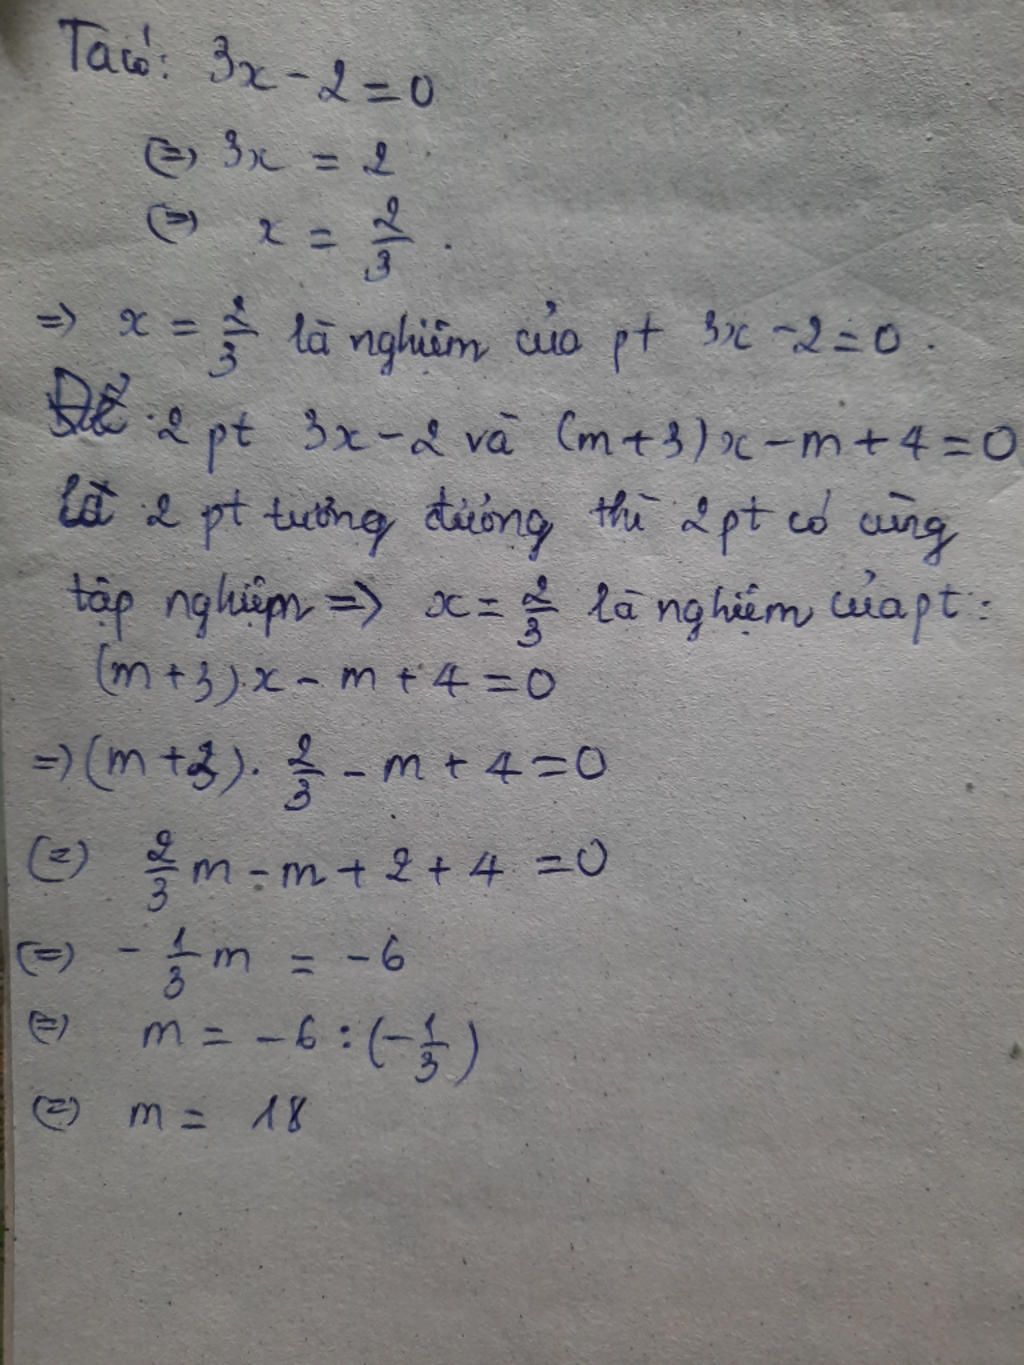 Ta có: 3x - 2 = 0
(=) 3x = 2
(=) x = 2/3.
=> x = 2/3 là nghiệm của pt 3x - 2 = 0.
Để 2 pt 3x - 2 và (m + 3)x - m + 4 = 0
là 2 pt tương đương thì 2 pt có cùng
tập nghiệm => x = 2/3 là nghiệm của pt:
(m + 3).x - m + 4 = 0
=> (m + 3). 2/3 - m + 4 = 0
(=) 2/3 m - m + 2 + 4 = 0
(=) - 1/3 m = -6
(=) m = -6 : (-1/3)
(=) m = 18